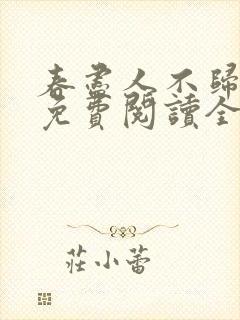 春盡人不歸
免費閱讀全
莊小蕾